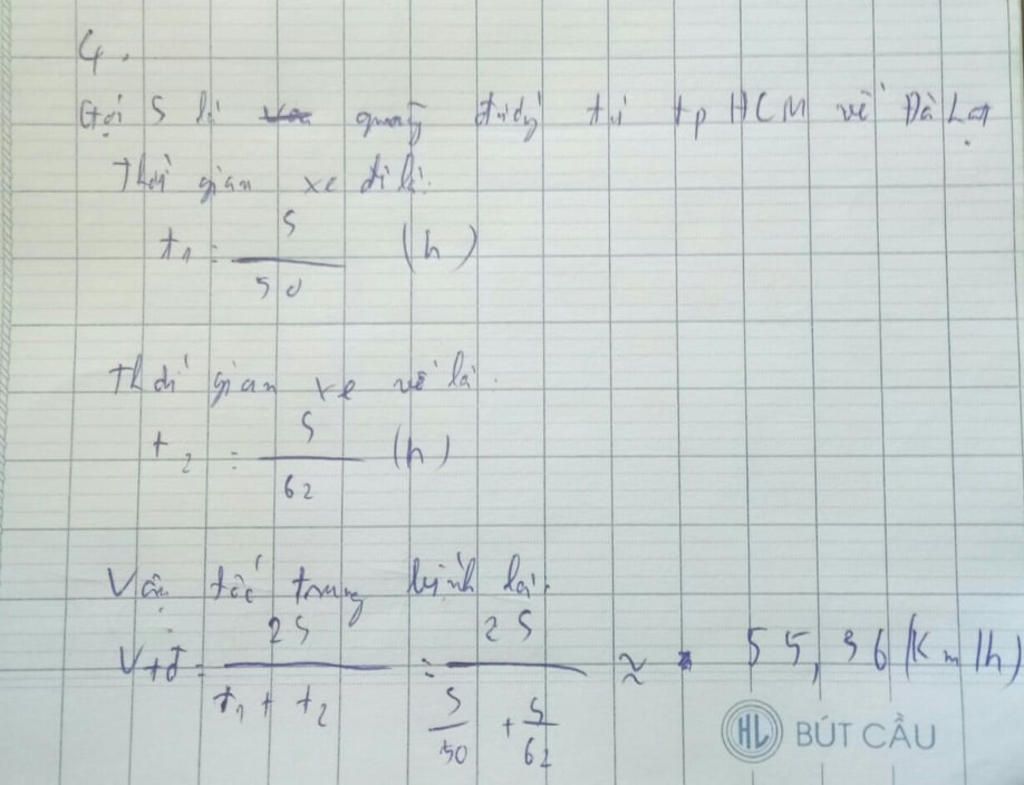 4.
Gọi S là quãng đường từ tp HCM về Đà Lạt
Thời gian xe đi là:
t₁ = S/50 (h)
Thời gian xe về là:
t₂ = S/62 (h)
Vận tốc trung bình là:
Vtđ = 2S/(t₁ + t₂) = 2S/(S/50 + S/62) ≈ 55,36 (Km/h)
HL BÚT CẦU